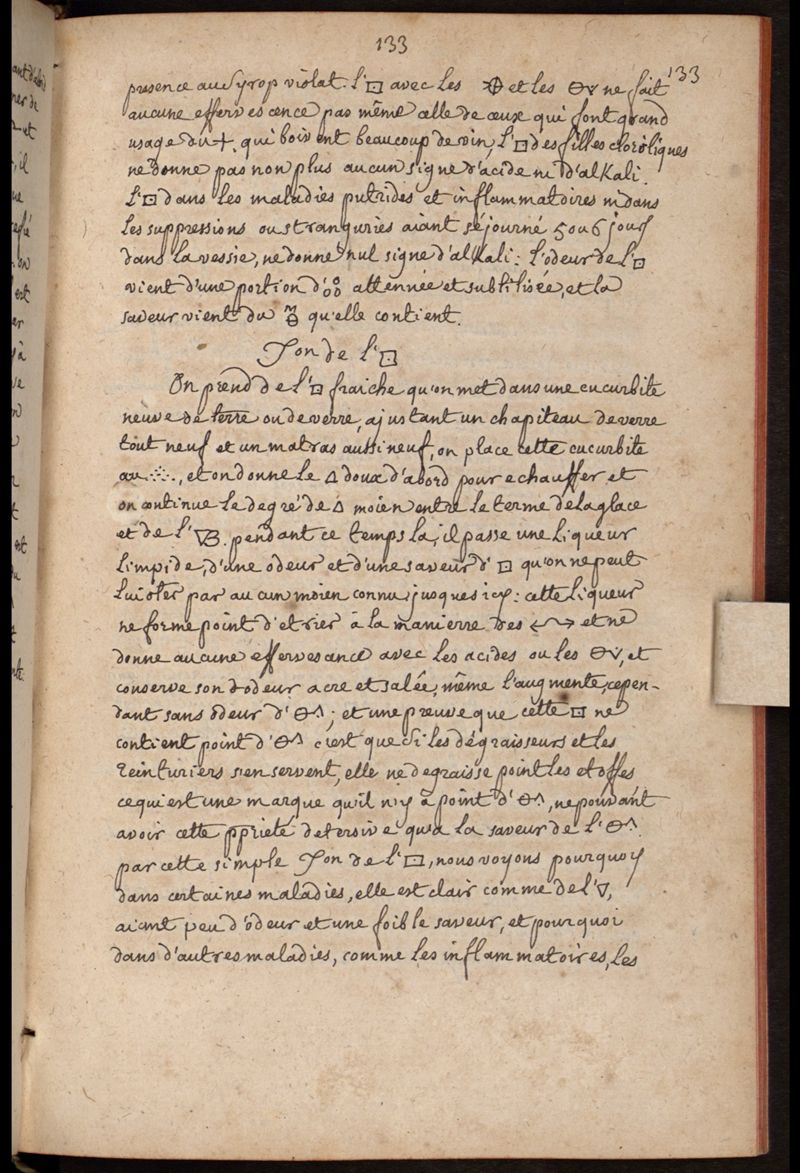 133
133
presence au Syrop violat. l'□ avec les 🜔 et les ⊖v ne fait
aucune efferves cence pas même celle de ceux qui font grand
usage du +, qui boivent beaucoup de vin, l'□ des filles clorotiques
ne donne pas non plus aucun signe d'acide ni d'alKali.
l'□ dans les maladies putrides et inflammatoires ni dans
les suppressions ou stranguries aiant séjourné 5 ou 6 jours
dans la vessie, ne donne nul signe d'alKali: l'odeur de l'□
vient d'une portion d' atténnée et subtilisée, et la
saveur vient du qu'elle contient.
de l'□
On prend de l'□ fraiche qu'on met dans une cucurbite
neuve de terre ou de verre, ajustant un chapiteau de verre
tout neuf et un matras aussi neuf, on place cette cucurbite
au ⁘, et on donne le △ doux d'abord pour echauffer et
on continue le degré de △ moien entre le terme de la glace
et de l'▽B. pendant ce temps la, il passe une liqueur
limpide, d'une odeur et d'une saveur d'□ qu'on ne peut
lui oter par aucun moien connu jusques icy: cette liqueur
ne forme point d'etrier à la manierre des et ne
donne aucune effervesance avec les acides ou les ⊖v, et
conserve son odeur acre et salée, même l'augmente, cepen-
dant sans ödeur d'⊖^; et une preuve que cette □ ne
contient point d'⊖^ c'est que si les dégraisseurs et les
teinturiers s'en servent, elle ne degraisse point les etoffes
ce qui est une marque qu'il n'y à point d'⊖^, ne pouvant
avoir cette pprieté detersive qu'a la saveur de l'⊖^.
par cette simple de l'□, nous voyons pourquoy
dans certaines maladies, elle est clair comme de l'▽,
aiant peu d'ödeur et une foible saveur, et pourquoi
dans d'autres maladies, comme les inflammatoires, les